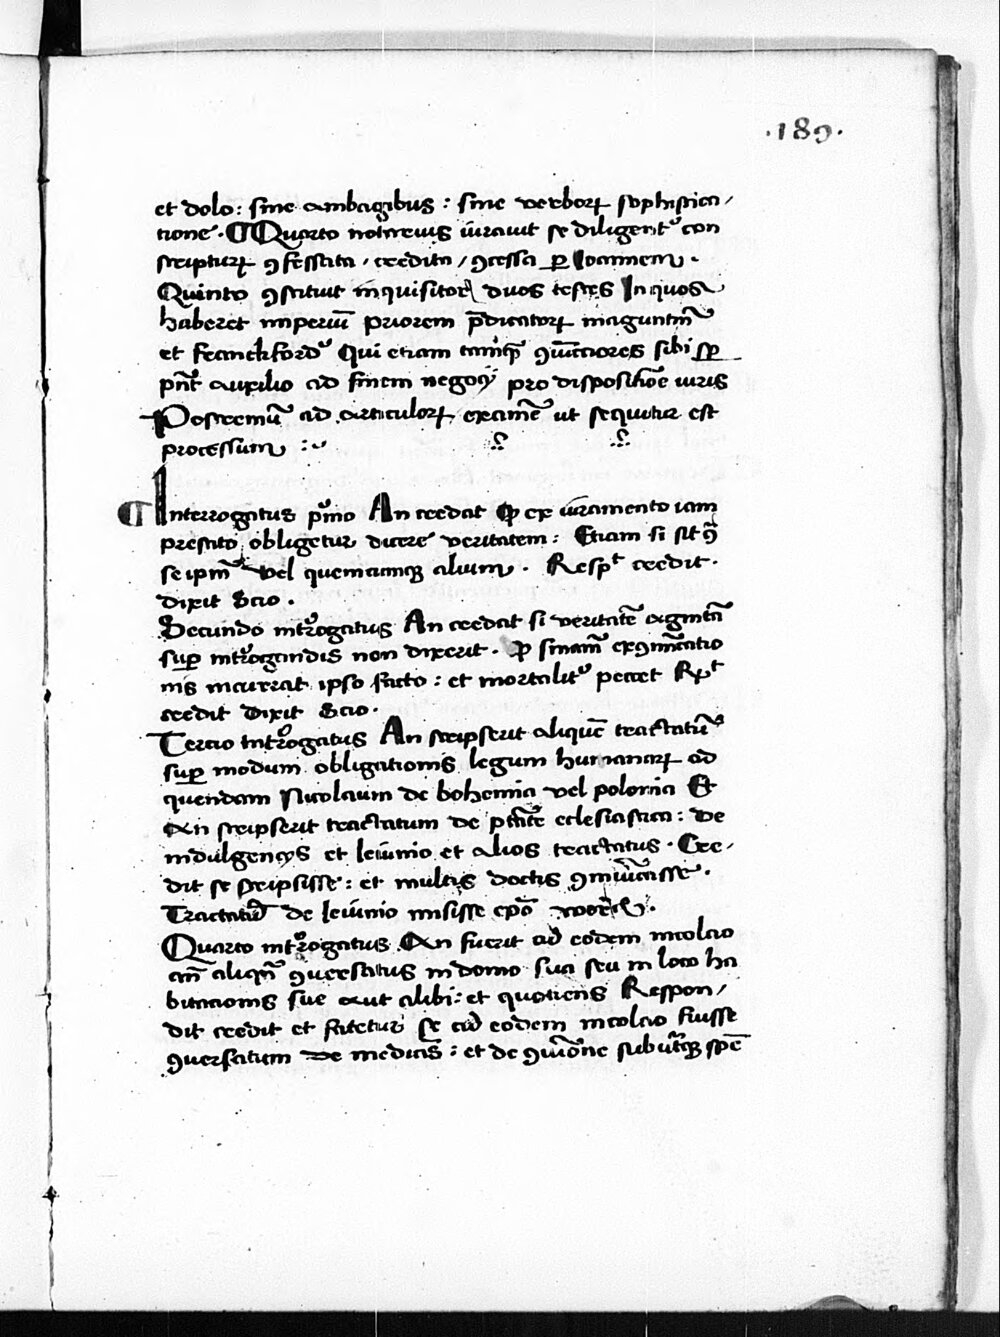 .189.
et dolo: sine ambagibus: sine verborꝝ sophistica/
tione. ¶ Quarto notarius iuravit se diligentꝰ con
scripturꝝ ꝯfessata, credita, ꝯcessa ꝑ Ioannem.
Quinto ꝯstituit inquisitor duos testes In quos
haberet imperiū priorem p̄dicatorꝝ maguntinū
et franckfordꝰ Qui etiam tamꝙ̄ ꝯiūctiores sibi
pn̄t auxilio ad finem negocij pro dispositiōe iuris
Postremū ad articulorꝝ examē ut sequitur est
processum :
¶ Interrogatus pͥmo An credat ꝙ ex iuramento iam
prestito obligetur dicere veritatem: Etiam si sit ꝯͣ
seipm̄ vel quemcumqꝫ alium. Respͭ credit.
dixit Scio.
Secundo intͬrogatus An credat si veritatē agnitā
suꝑ intͬrogandis non dixerit. ꝙ sn̄iam exꝯmūicatio
nis incurrat ipso facto: et mortalitꝰ peccet Rͭ
credit dixit Scio.
Tercio intͬrogatus An scripserit aliquē tractatū
suꝑ modum obligationis legum humanarꝝ ad
quendam Nicolaum de bohemia vel polonia Et
An scripserit tractatum de ptāte eclesiastica: De
indulgencijs et Ieiunio et alios tractatus. Cre/
dit se scripsisse: et multis doctis ꝯmūicasse.
Tractatū de Ieiunio misisse ep̄o
Quarto intͬrogatus An fuerit cū eodem nicolao
aliqn̄ ꝯversatus in domo sua seu in loco ha
bitacionis sue aut alibi: et quotiens Respon/
dit credit et fatetur se cū eodem nicolao fuisse
ꝯversatum De mediis: et de ꝯmūione sub utraqꝫ spē